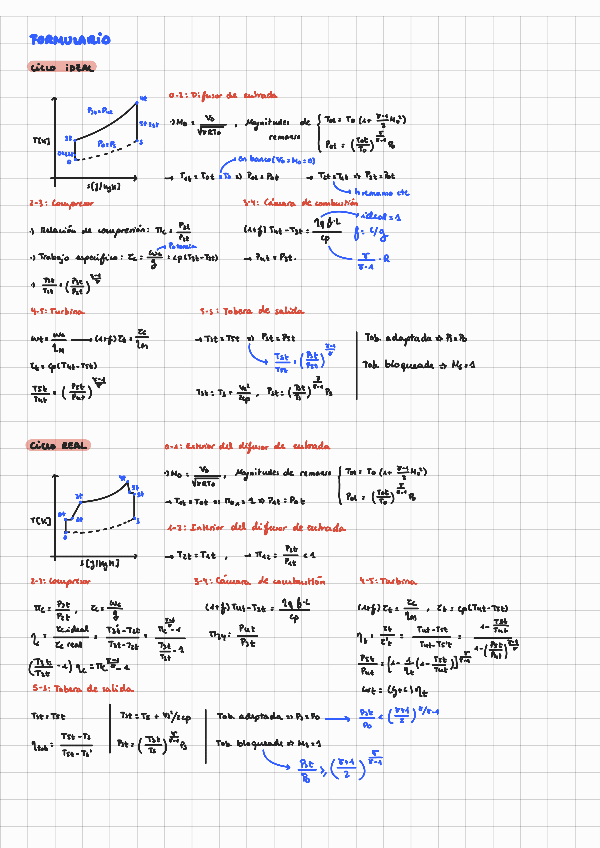 FORMULARIO
CICLO IDEAL
0-2: Difusor de entrada
→ M₀ = V₀/√(γRT₀) , Magnitudes de remanso { T₀t = T₀ (1 + (γ-1)/2 M₀²)
P₀t = (T₀t/T₀)^(γ/(γ-1)) P₀
T[K]
S[J/kgK]
P3t=P4t
P0=P5
4t
3t
5t
5
0
En banco (V₀=M₀=0)
→ T2t = T0t = T0 ⇒ P0t = P2t → T2t = T0t ⇒ P2t = P0t
2-3: Compresor
→ Relación de compresión: πc = P3t/P2t
Potencia
→ Trabajo específico: τc = ẇc/g = cp(T3t-T2t)
→ T3t/T2t = (P3t/P2t)^((γ-1)/γ)
3-4: Cámara de combustión
(1+f) T4t - T3t = ηq f·L/cp
ideal = 1
f = c/g
→ P4t = P3t.
γ/(γ-1) · R
4-5: Turbina
ẇt = ẇc/ηM → (1+f) τt = τc/ηM
τt = cp(T4t-T5t)
T5t/T4t = (P5t/P4t)^((γ-1)/γ)
5-s: Tobera de salida
→ Tst = T5t ⇒ Pst = P5t
Tst = Ts + Vs²/2cp , Pst = (Tst/Ts)^(γ/(γ-1)) Ps
Tob. adaptada ⇒ Ps = P0
Tob. bloqueada ⇒ Ms = 1
CICLO REAL
0-1: Exterior del difusor de entrada
→ M₀ = V₀/√(γRT₀) , Magnitudes de remanso { T₀t = T₀ (1 + (γ-1)/2 M₀²)
P₀t = (T₀t/T₀)^(γ/(γ-1)) P₀
→ T1t = T0t ⇒ π01 = 1 ⇒ P1t = P0t
T[K]
S[J/kgK]
1-2: Interior del difusor de entrada
→ T2t = T1t , → π12 = P2t/P1t < 1
2-3: Compresor
πc = P3t/P2t , τc = ẇc/g
ηc = τc ideal/τc real = (T3't-T2t)/(T3t-T2t) = (πc^((γ-1)/γ) - 1)/(T3t/T2t - 1)
(T3t/T2t - 1) ηc = πc^((γ-1)/γ) - 1
3-4: Cámara de combustión
(1+f) T4t - T3t = ηq f·L/cp
π34 = P4t/P3t
4-5: Turbina
(1+f) τt = τc/ηM , τt = cp(T4t-T5t)
ηt = τt/τ't = (T4t-T5t)/(T4t-T5't) = (1 - T5t/T4t)/(1-(P5t/P4t)^((γ-1)/γ))
P5t/P4t = [1 - 1/ηt (1 - T5t/T4t)]^(γ/(γ-1))
5-s: Tobera de salida
Tst = T5t
ηtob = (T5t-Ts)/(T5t-Ts')
Tst = Ts + Vs²/2cp
Pst = (Tst/Ts)^(γ/(γ-1)) Ps
Tob. adaptada ⇒ Ps = P0 → Pst/P0 < ((γ+1)/2)^(γ/γ-1)
Tob. bloqueada ⇒ Ms = 1
Pst/P0 ≥ ((γ+1)/2)^(γ/(γ-1))